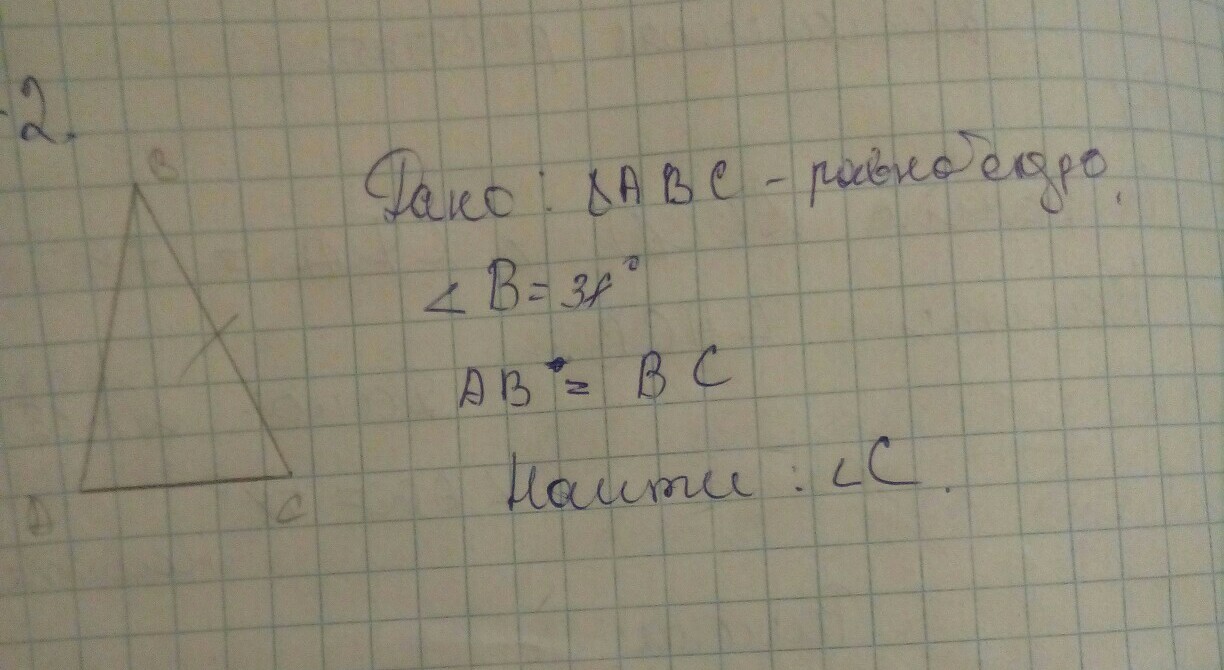 2.
B
Дано: ΔABC - равнобедр.
∠B = 38°
AB = BC
Найти: ∠C.
A
C